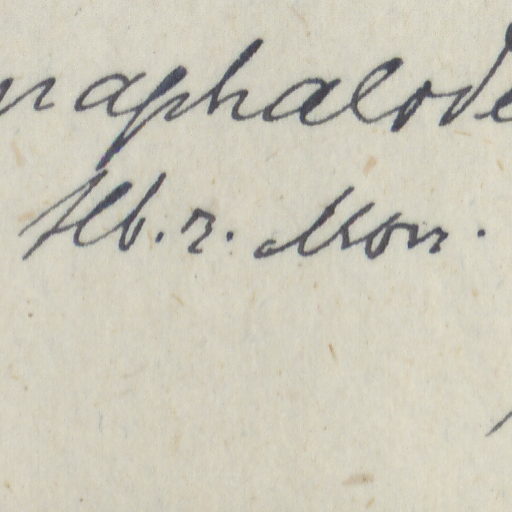 naphalode
Hb. r. Mon.